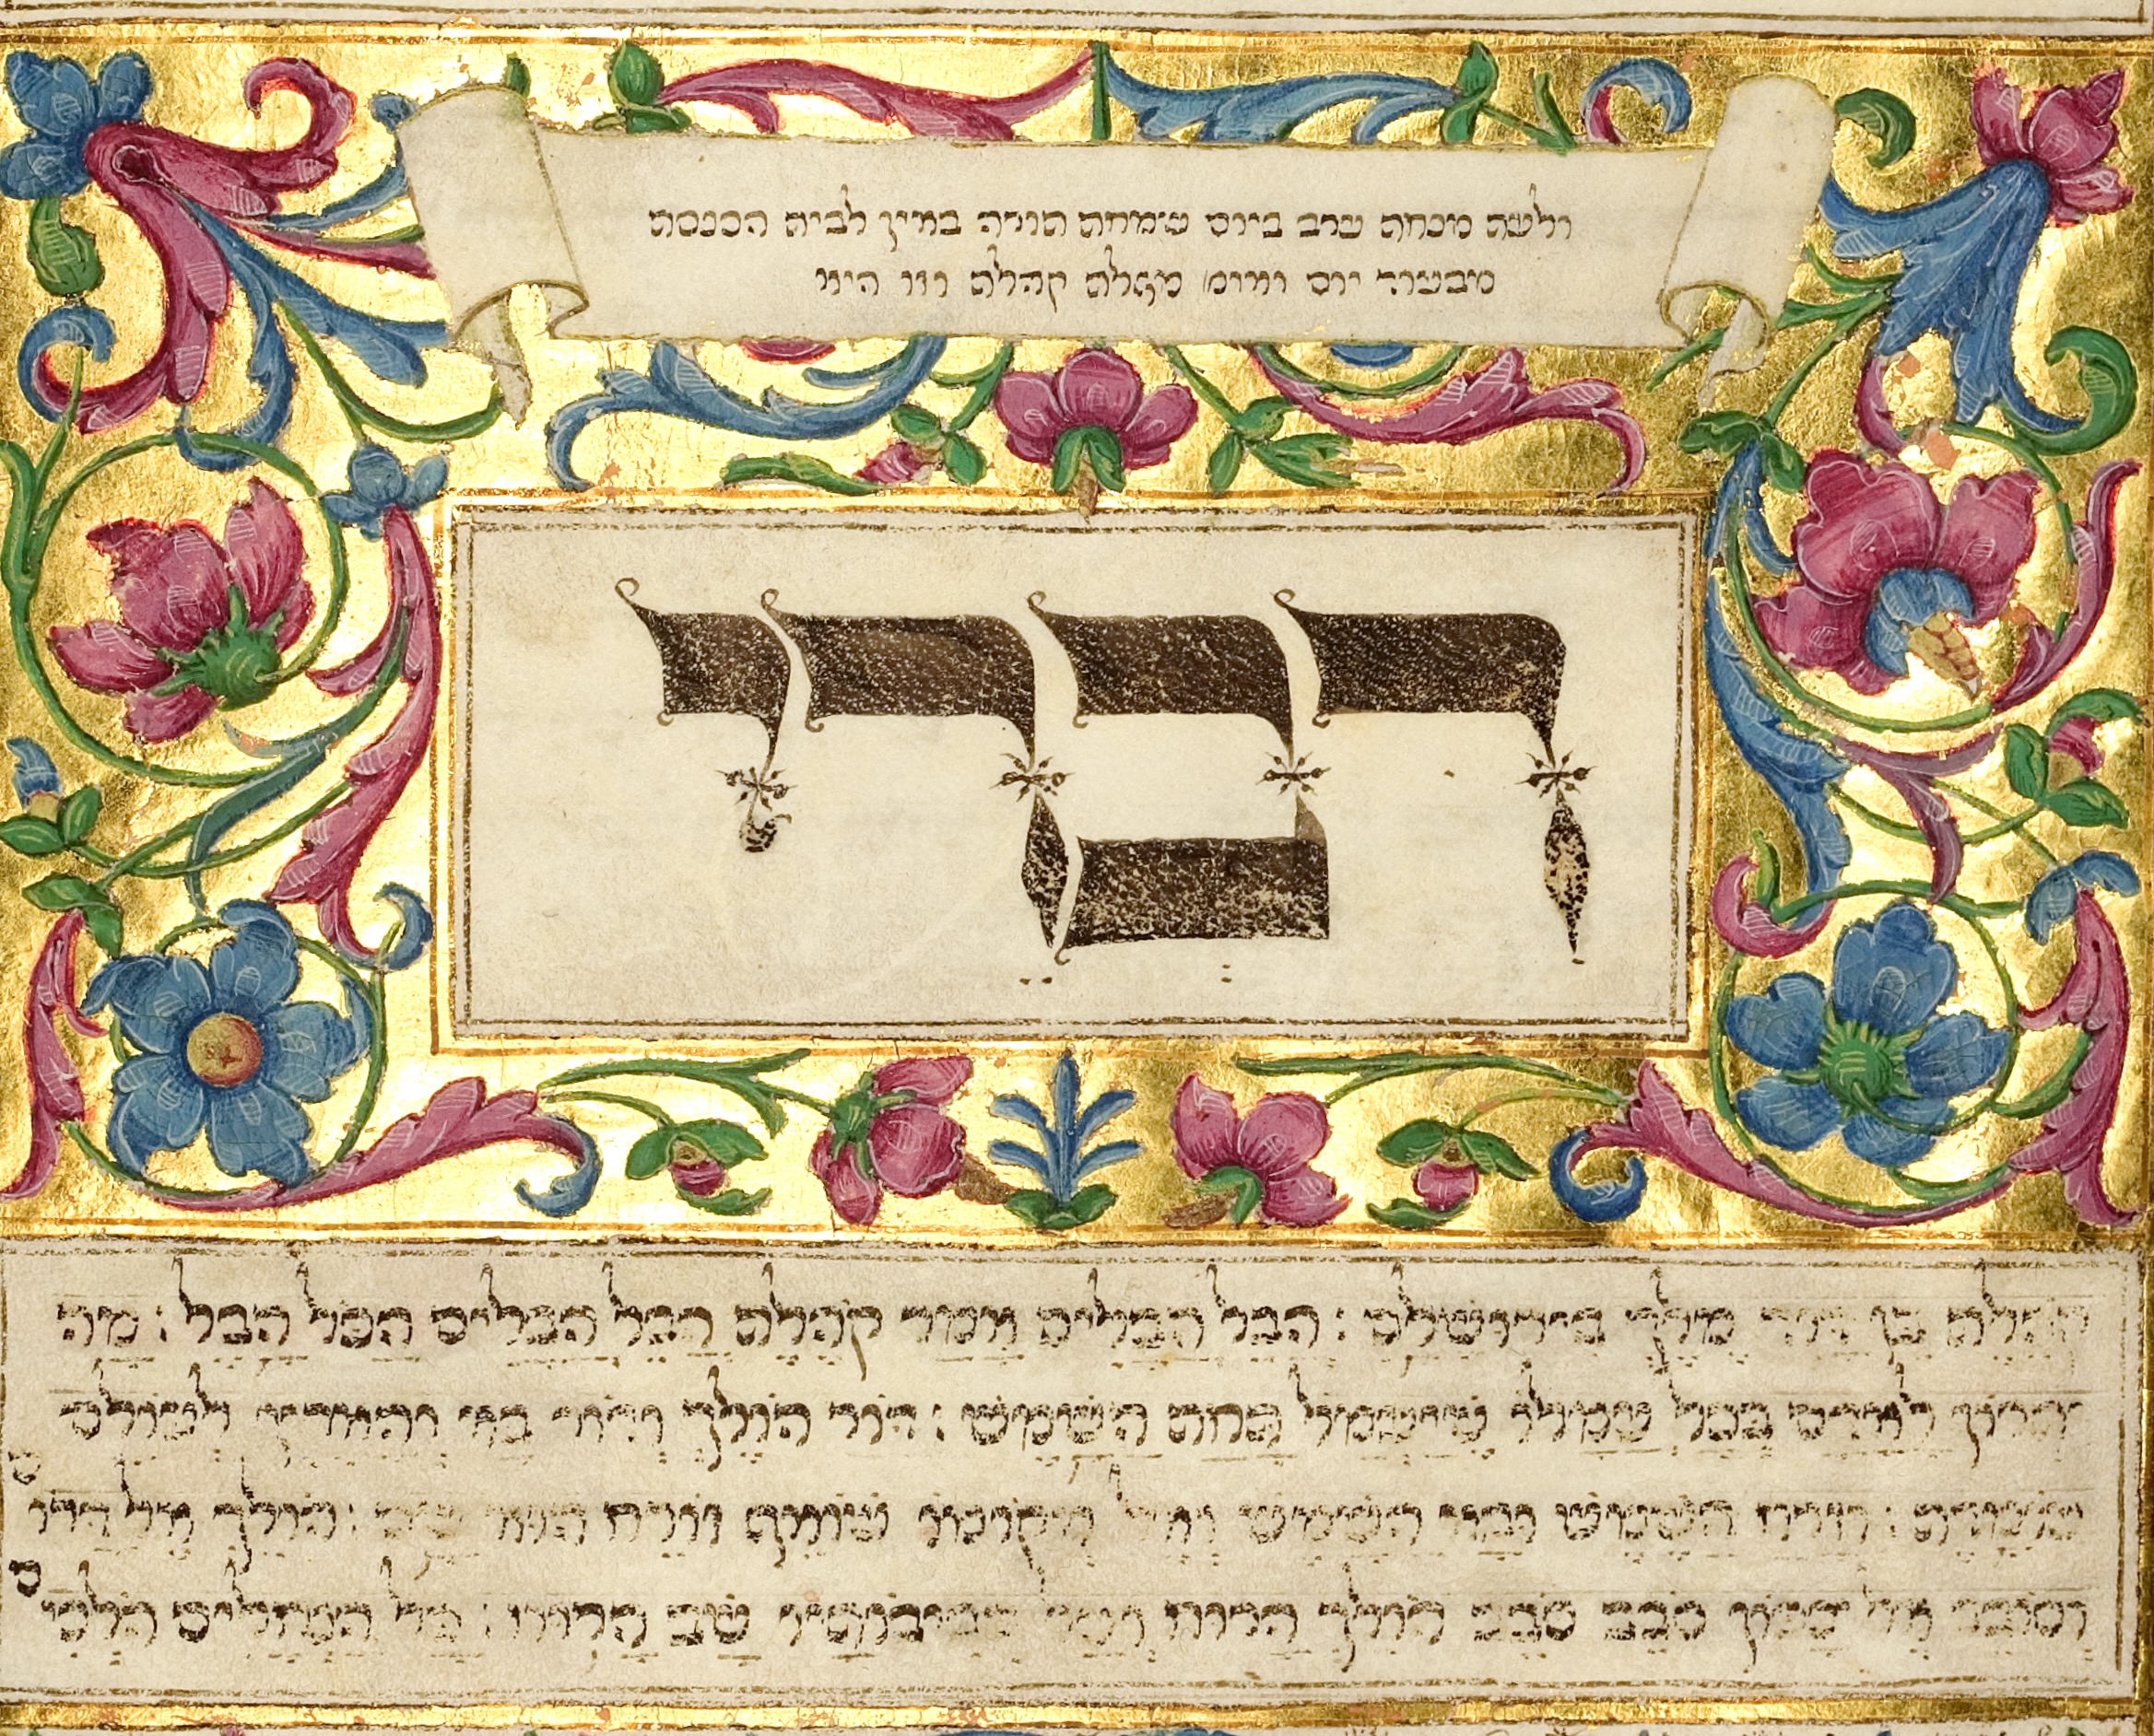 ולעת מנחה ערב ביום שמחת תורה באין לבית הכנסת
מבעוד יום ואומ' מגלת קהלת וזו היא
דברי
קהלת בן דוד מלך בירושלם : הבל הבלים אמר קהלת הבל הבלים הכל הבל : מה
יתרון לאדם בכל עמלו שיעמל תחת השמש : דור הולך ודור בא והארץ לעולם
עומדת : וזרח השמש ובא השמש ואל מקומו שואף זורח הוא שם : הולך אל דרום
וסובב אל צפון סבב סבב הולך הרוח ועל סביבותיו שב הרוח : כל הנחלים הולכים